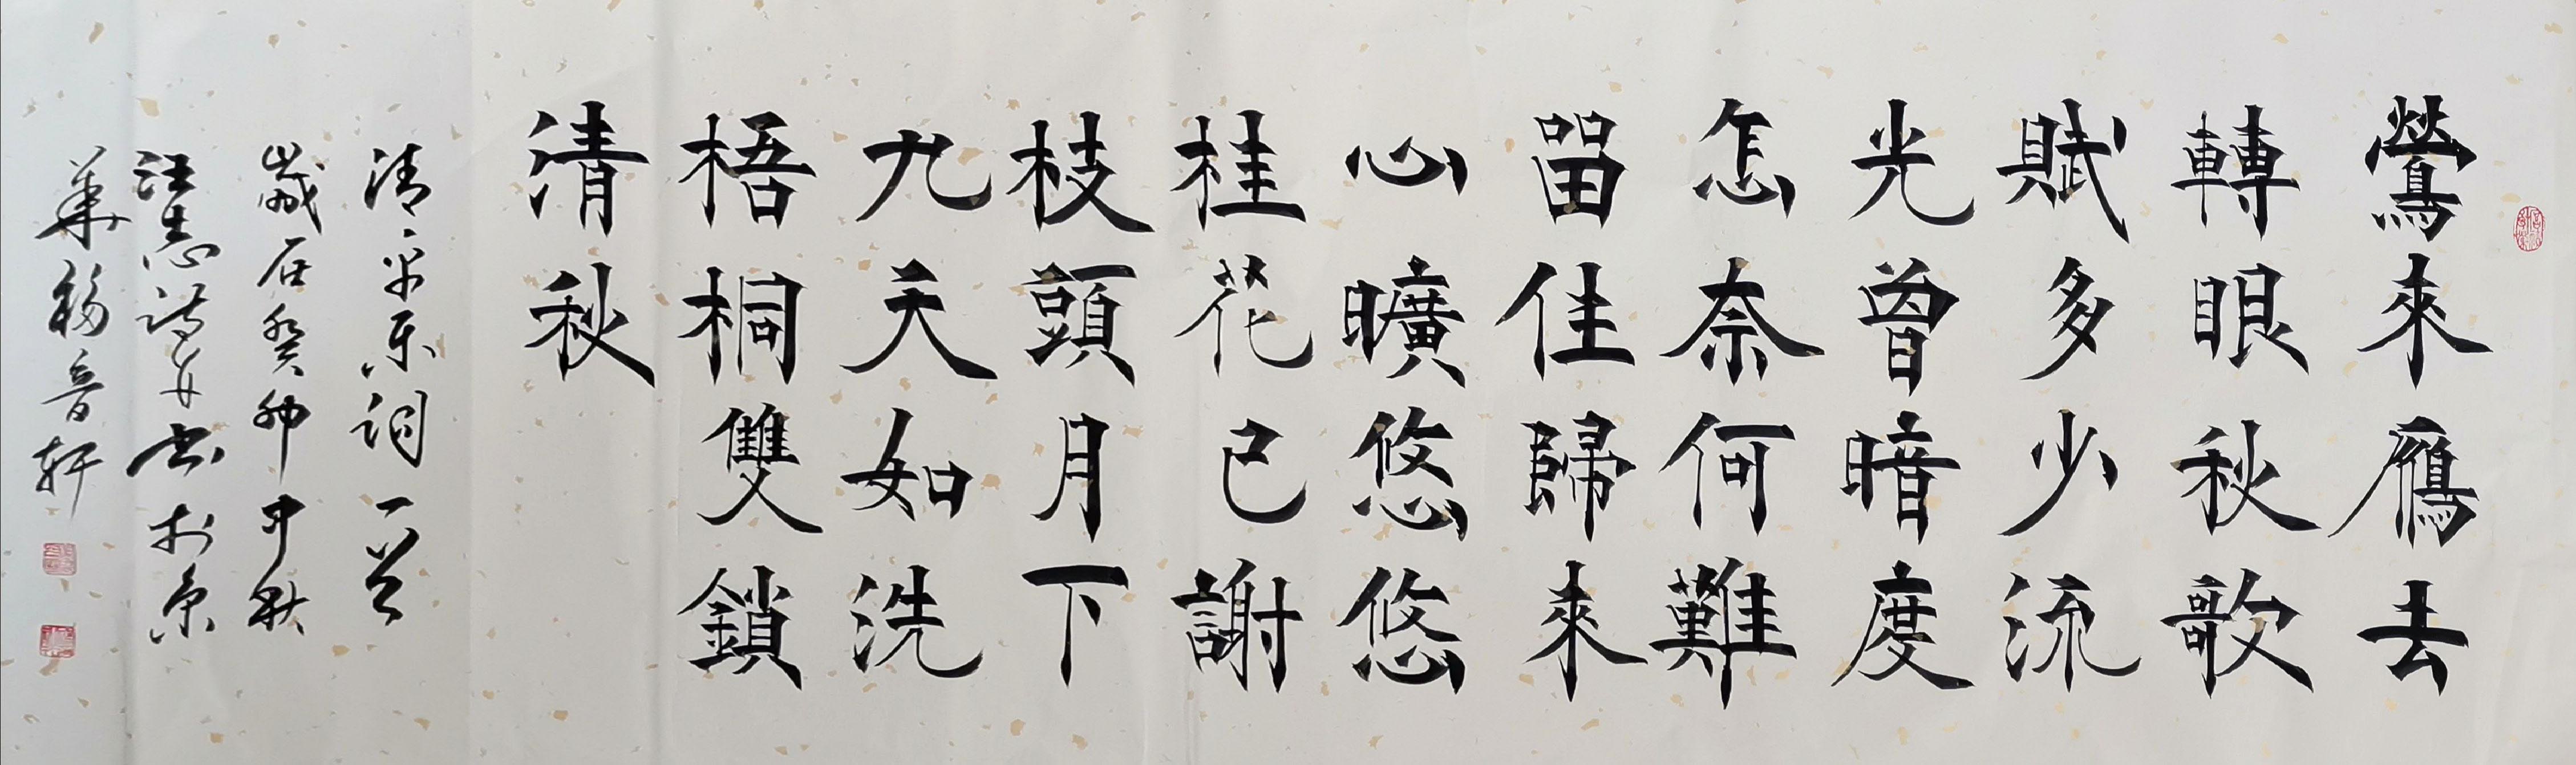 鶯來鴈去
轉眼秋歌
賦多少流
光曾暗度
怎奈何難
留住歸來
心曠悠悠
桂花已謝
枝頭月下
九天如洗
梧桐雙鎖
清秋
清平乐词一首
歲在癸卯中秋
汪志詩并书於京
華移音軒